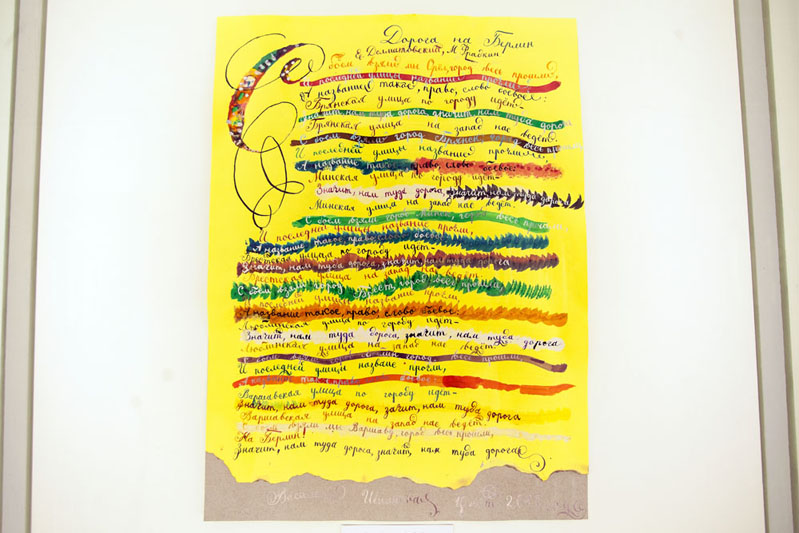 Дорога на Берлин
Е. Долматовский, М. Фрадкин
С боем взяли мы Орёл, город весь прошли,
И последней улицы название прочли,
А название такое, право, слово боевое:
Брянская улица по городу идёт-
Значит, нам туда дорога, значит, нам туда дорога
Брянская улица на запад нас ведёт.
С боем взяли город Брянск, город весь прошли,
И последней улицы название прочли,
А название такое, право, слово боевое:
Минская улица по городу идёт-
Значит, нам туда дорога, значит, нам туда дорога
Минская улица на запад нас ведёт.
С боем взяли город Минск, город весь прошли,
И последней улицы название прочли,
А название такое, право, слово боевое:
Брестская улица по городу идёт-
Значит, нам туда дорога, значит, нам туда дорога
Брестская улица на запад нас ведёт.
С боем взяли город Брест, город весь прошли,
И последней улицы название прочли,
А название такое, право, слово боевое:
Люблинская улица по городу идёт-
Значит, нам туда дорога, значит, нам туда дорога
Люблинская улица на запад нас ведёт.
С боем взяли город Люблин, город весь прошли,
И последней улицы назване прочли,
А название такое, право, боевое:
Варшавская улица по городу идёт-
Значит, нам туда дорога, зачит, нам туда дорога
Варшавская улица на запад нас ведёт.
С боем взяли мы Варшаву, город весь прошли,
На Берлин!
Значит, нам туда дорога, значит, нам туда дорога